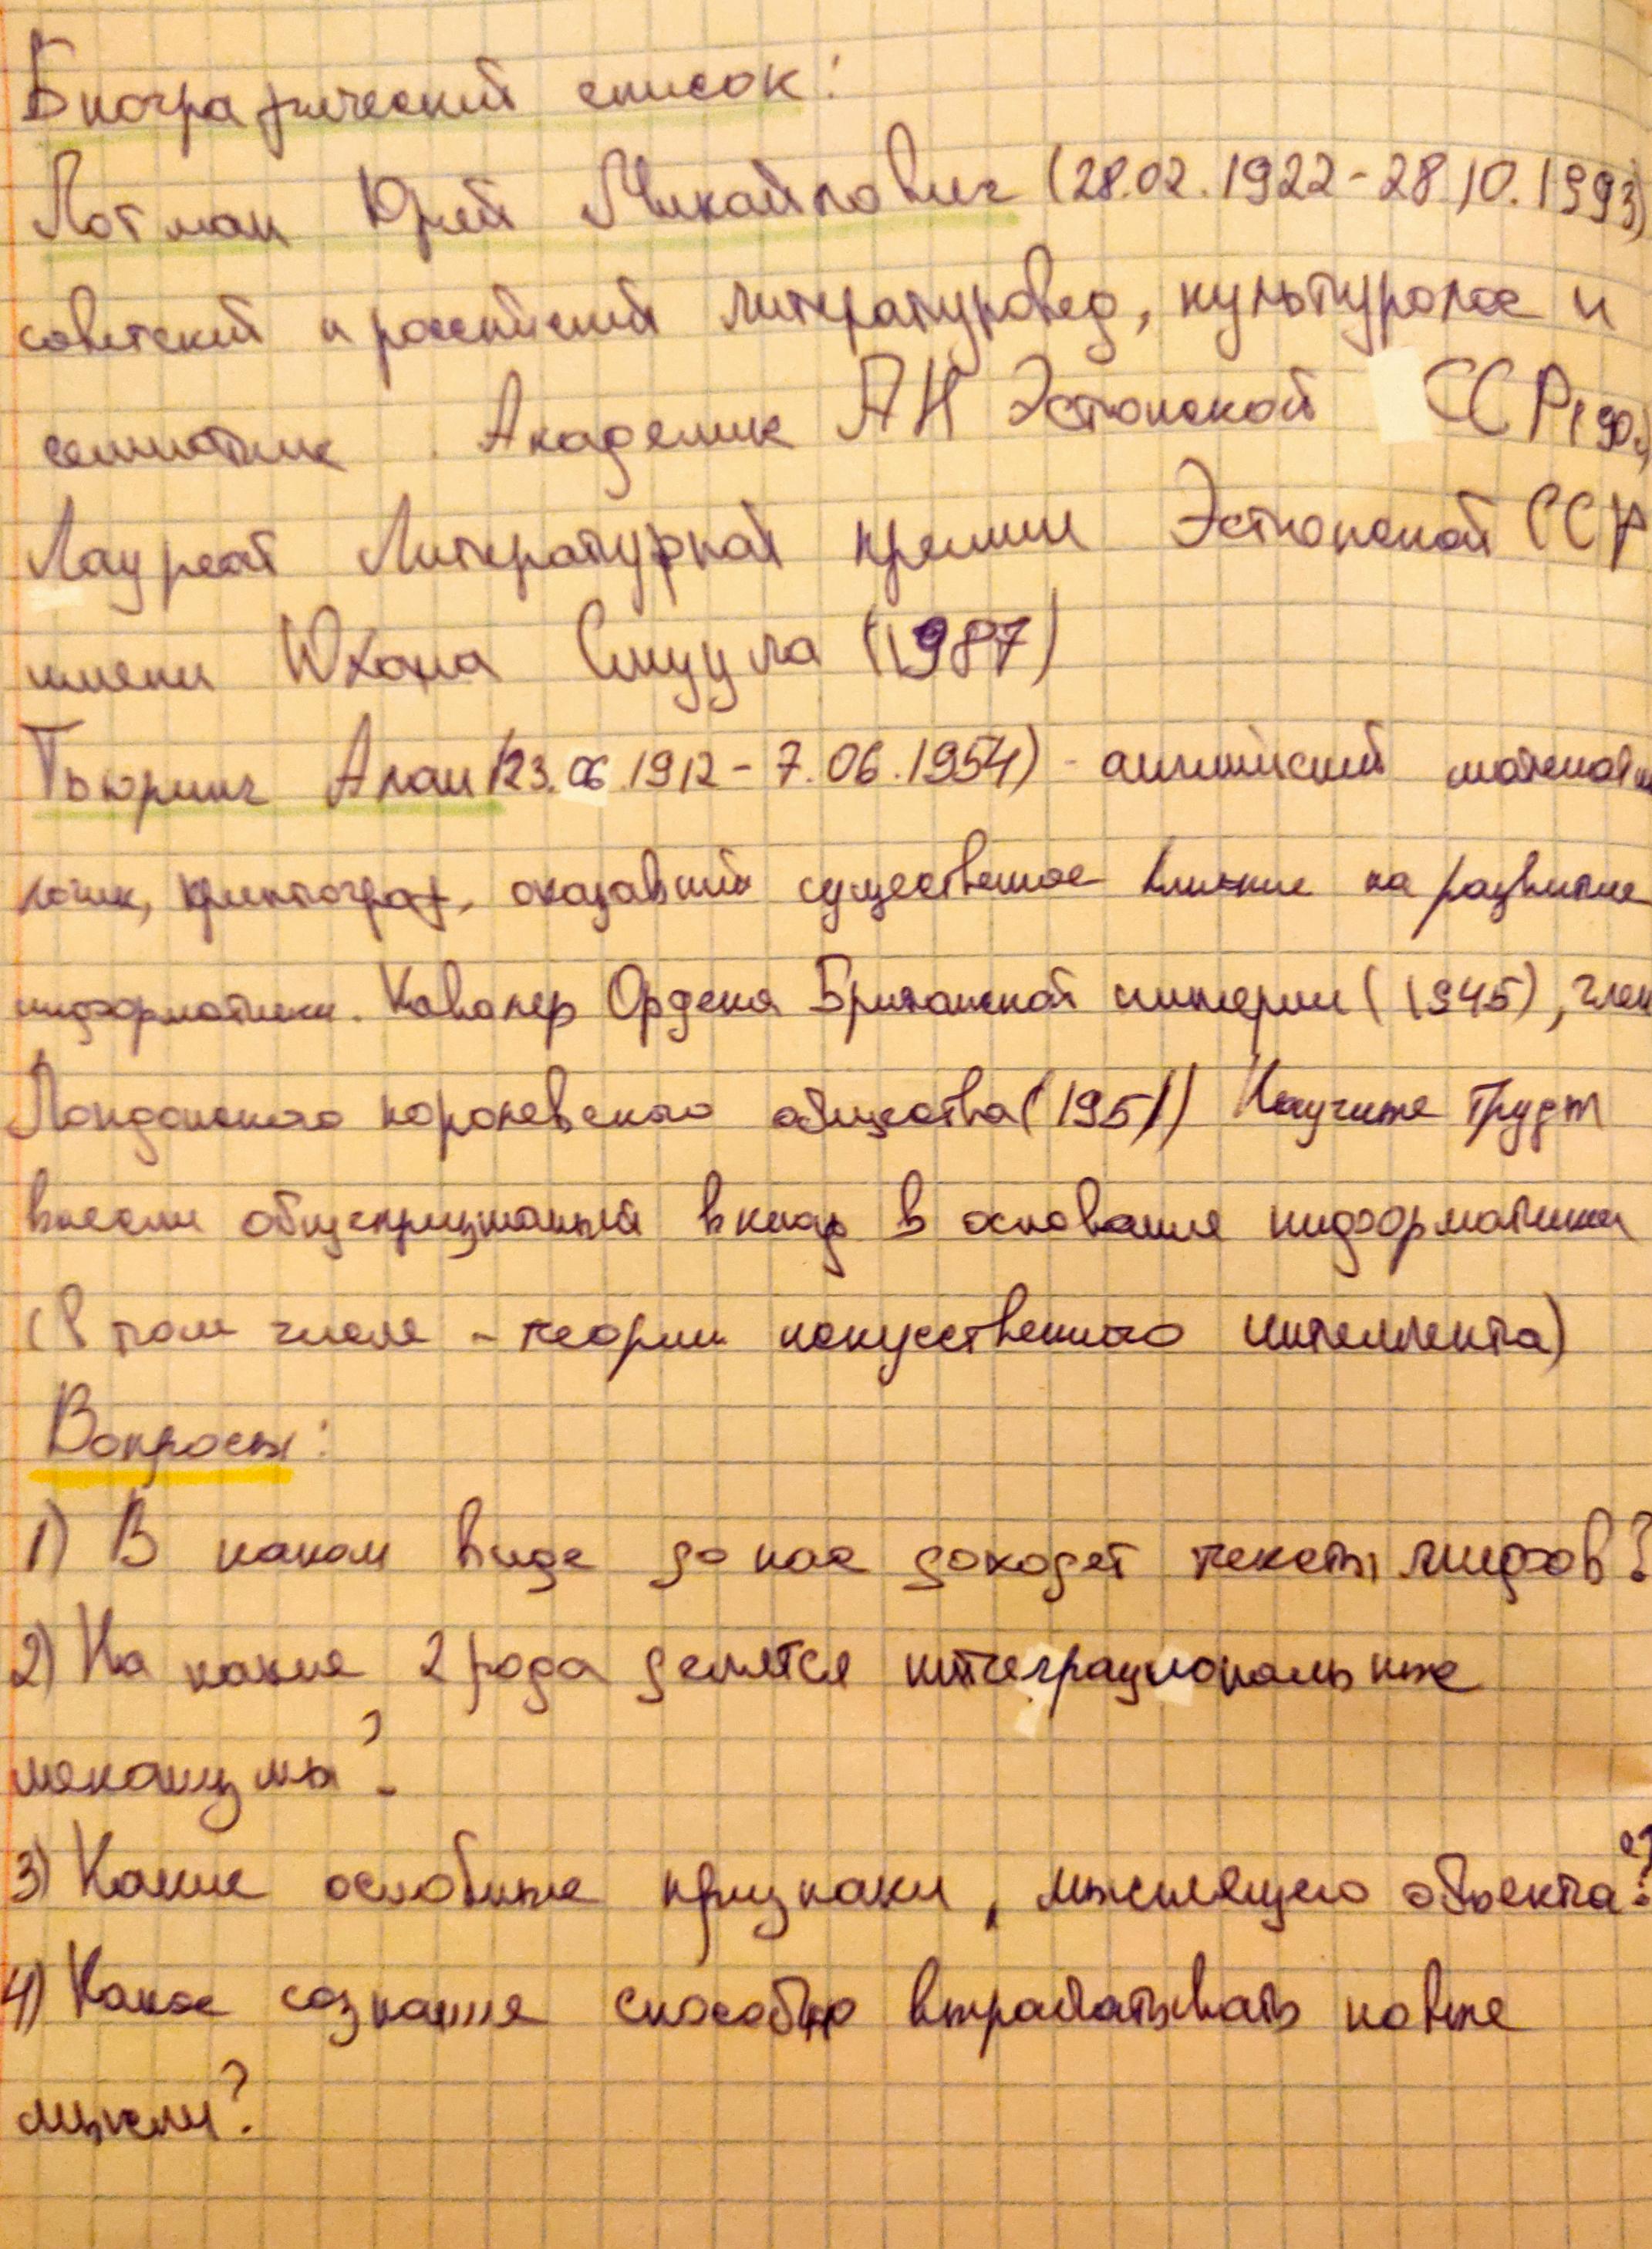 Биографический список:
Лотман Юрий Михайлович (28.02.1922-28.10.1993)
советский и российский литературовед, культуролог и
семиотик. Академик АН Эстонской ССР (90.)
Лауреат Литературной премии Эстонской ССР
имени Юхана Смуула (1987)
Тьюринг Алан (23.06.1912-7.06.1954) - английский математик
логик, криптограф, оказавший существенное влияние на развитие
информатики. Кавалер Ордена Британской империи (1945), член
Лондонского королевского общества (1951) Научные труды
внесли общепризнанный вклад в основания информатики
(в том числе - теории искусственного интеллекта)
Вопросы:
1) В каком виде до нас доходят тексты мифов?
2) На какие 2 рода делятся интеграциональные
механизмы?
3) Какие основные признаки, мыслящего объекта?
4) Какое сознание способно вырабатывать новые
мысли?